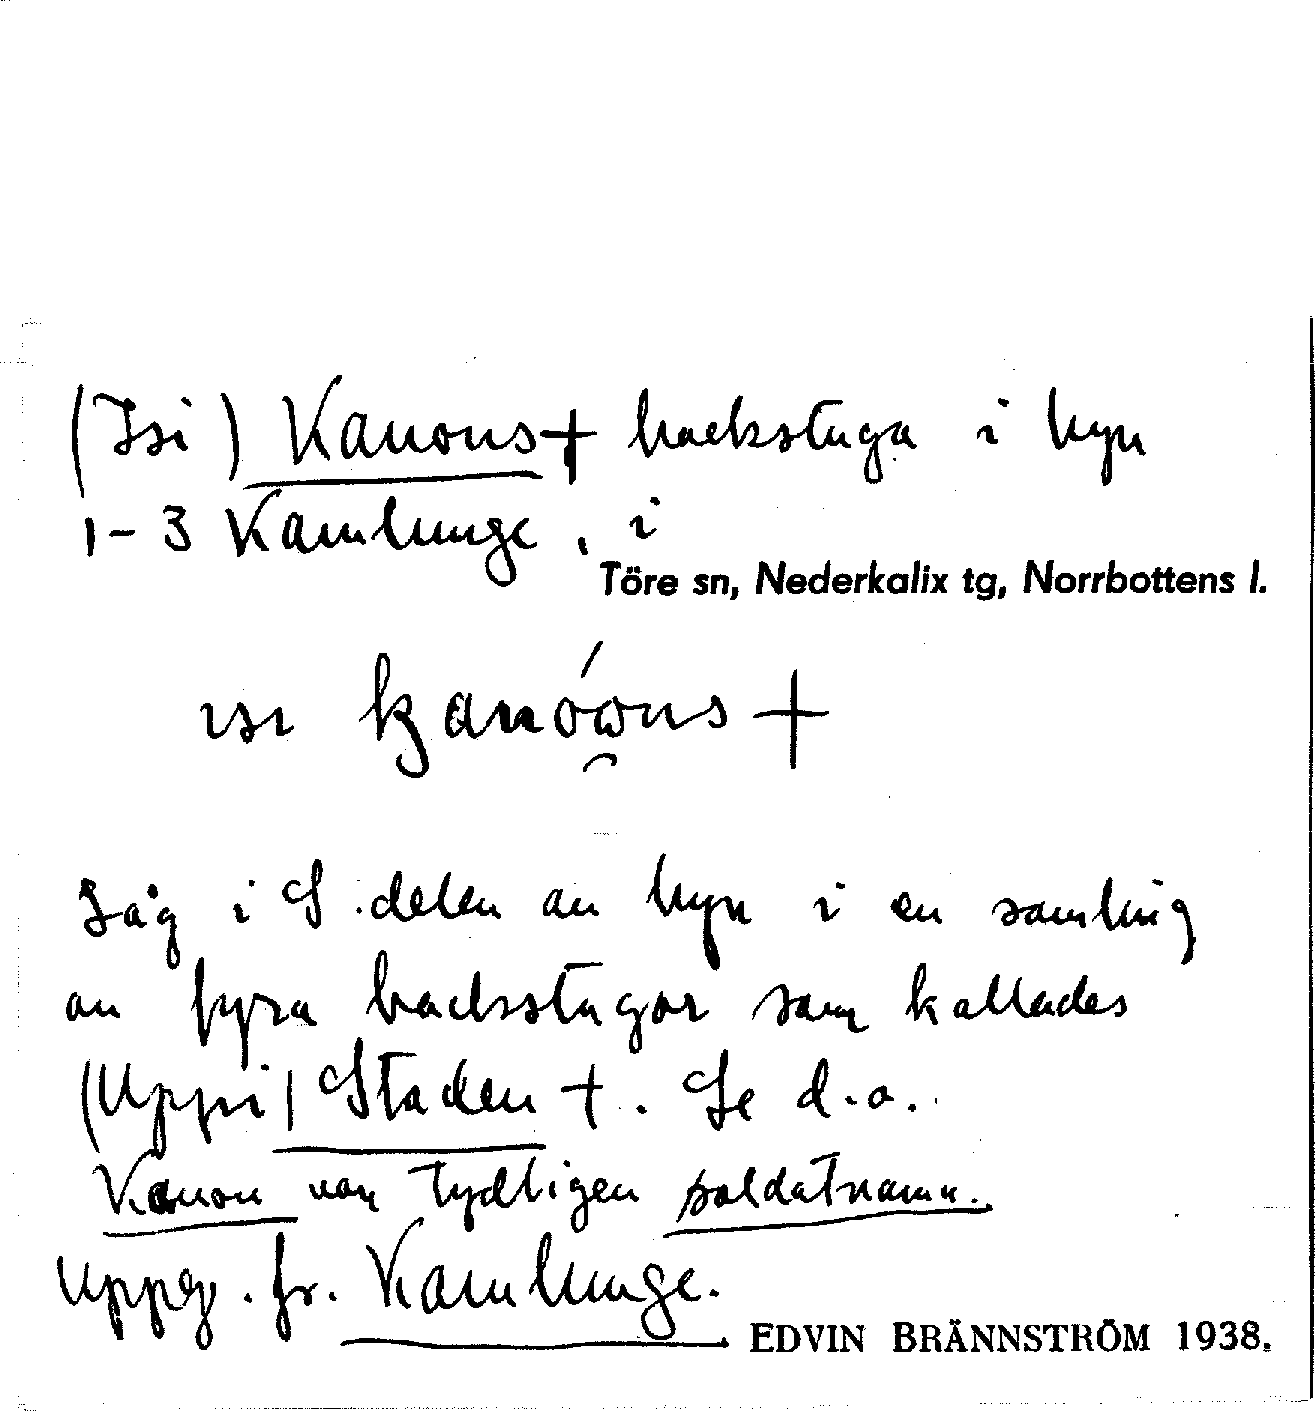 (Isi) Kanons + backstuga i byn
1-3 Kamlunge, i
Töre sn, Nederkalix tg, Norrbottens l.
ısı +
Låg i S. delen av byn i en samling
av fyra backstugor som kallades
(Uppi) Staden +. Se d.o.
Kanon var tydligen soldatnamn.
Uppg. fr. Kamlunge.
EDVIN BRÄNNSTRÖM 1938.